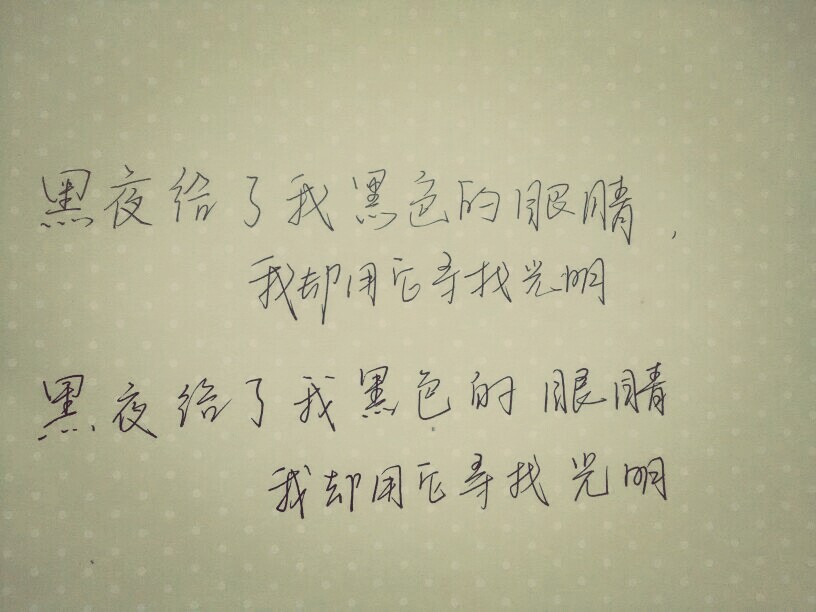 黑夜给了我黑色的眼睛，
我却用它寻找光明
黑夜给了我黑色的眼睛
我却用它寻找光明